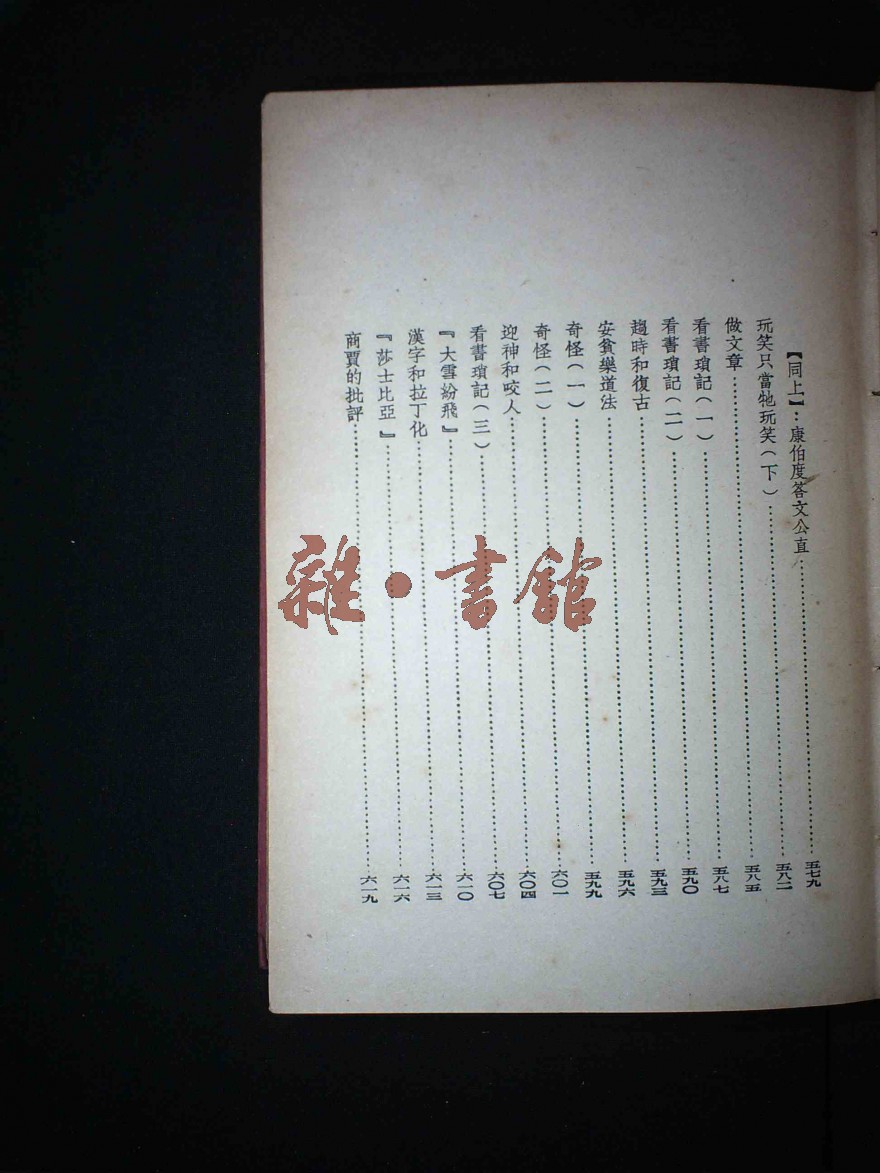 【同上】：康伯度答文公直……五七九
玩笑只當牠玩笑（下）……五八二
做文章……五八五
看書瑣記（一）……五八七
看書瑣記（二）……五九〇
趨時和復古……五九三
安貧樂道法……五九六
奇怪（一）……五九九
奇怪（二）……六〇一
迎神和咬人……六〇四
看書瑣記（三）……六〇七
『大雪紛飛』……六一〇
漢字和拉丁化……六一三
『莎士比亞』……六一六
商賈的批評……六一九
雜·書館